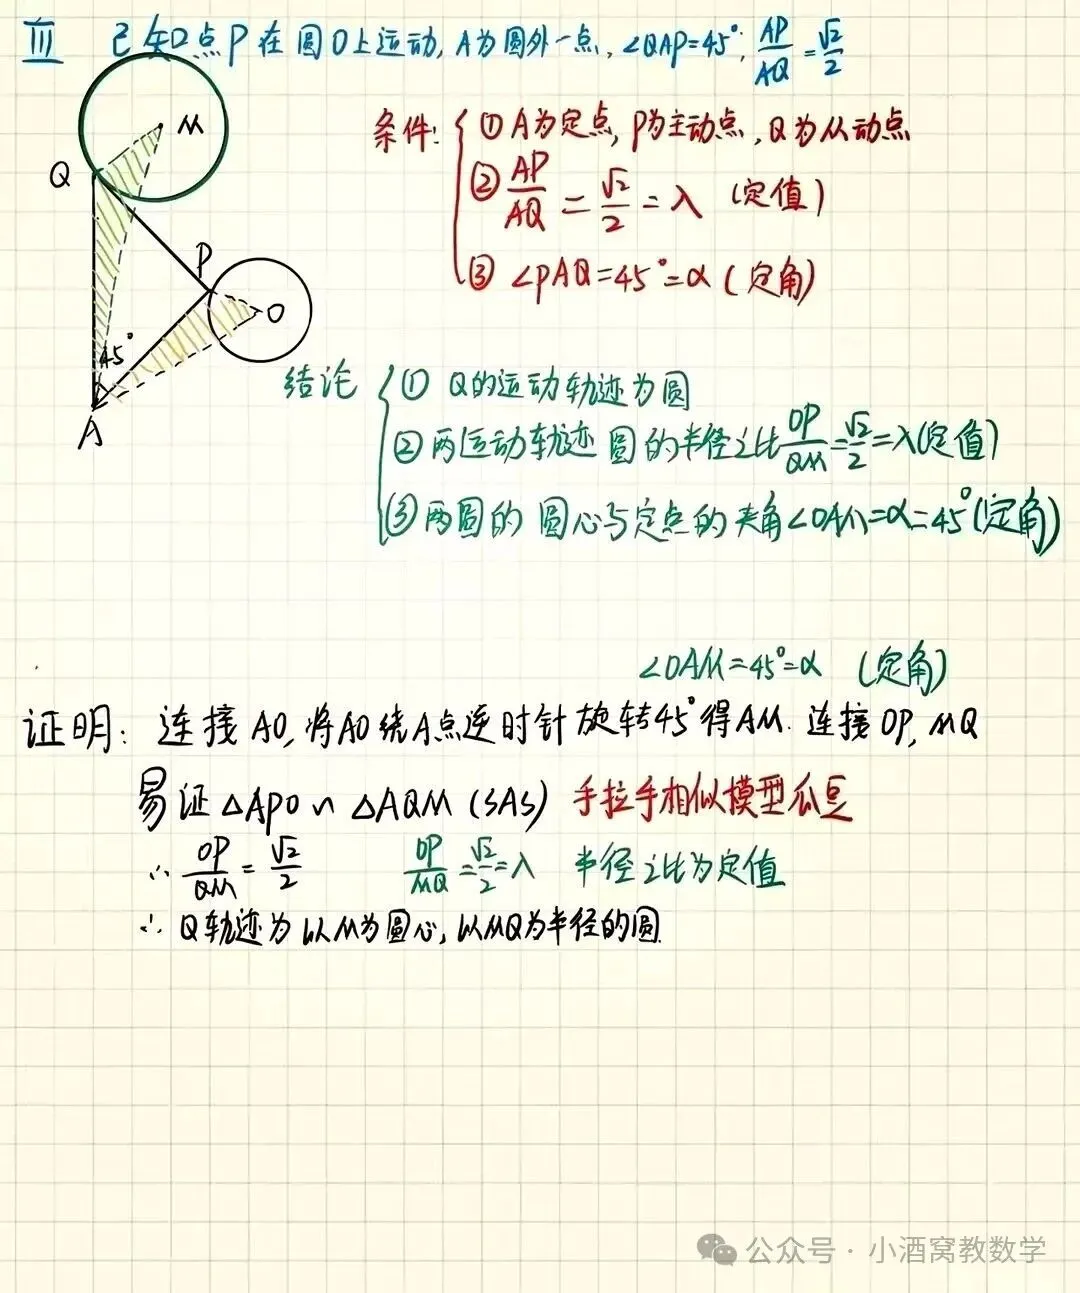 Ⅲ 已知点P在圆O上运动,A为圆外一点,∠QAP=45°,AP/AQ=√2/2
条件:
①A为定点,P为主动点,Q为从动点
②AP/AQ=√2/2=λ (定值)
③∠PAQ=45°=α(定角)
M
Q
P
O
45°
A
结论
①Q的运动轨迹为圆
②两运动轨迹圆的半径之比OP/QM=√2/2=λ(定值)
③两圆的圆心与定点的夹角∠OAM=α=45°(定角)
∠OAM=45°=α (定角)
证明: 连接AO,将AO绕A点逆时针旋转45°得AM.连接OP,MQ
易证△APO∽△AQM(SAS) 手拉手相似模型瓜豆
∴OP/QM=√2/2 OP/MQ=√2/2=λ 半径之比为定值
∴Q轨迹为以M为圆心,以MQ为半径的圆.
公众号·小酒窝教数学